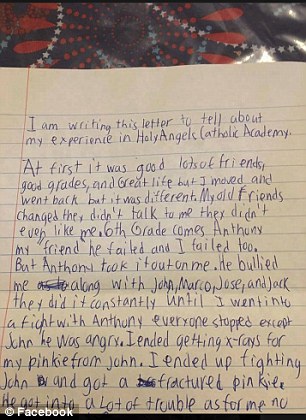 I am writing this letter to tell about
my experience in Holy Angels Catholic Academy.
At first it was good lots of friends,
good grades, and Great life but I moved and
went back but it was different. My old friends
changed they didn't talk to me they didn't
even like me. 6th Grade comes Anthony
my friend he failed and I failed too.
But Anthony took it out on me. He bullied
me along with John, Marco, Jose, and Jack
they did it constantly until I went into
a fight with Anthony everyone stopped except
John he was angry. I ended getting x-rays for
my pinkie from John. I ended up fighting
John and got a fractured pinkie.
he got into a Lot of trouble as for me no
© Facebook